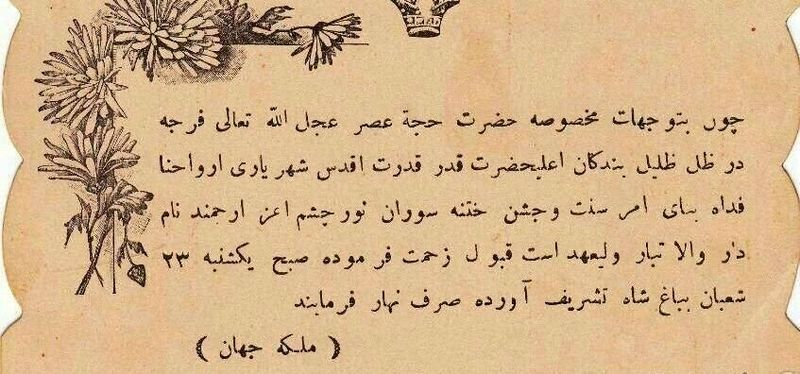 چون بتوجهات مخصوصه حضرت حجة عصر عجل الله تعالی فرجه
در ظل ظلیل بندکان اعلیحضرت قدر قدرت اقدس شهریاری ارواحنا
فداه بنای امر سنت وجشن ختنه سوران نورچشم اعز ارجمند نام
دار والا تبار ولیعهد است قبول زحمت فرموده صبح یکشنبه ۲۳
شعبان بباغ شاه تشریف آورده صرف نهار فرمایند
( ملکه جهان )